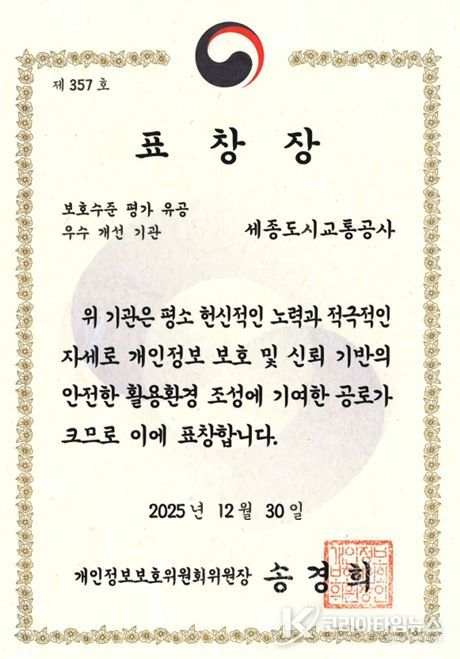 제 357 호
표 창 장
보호수준 평가 유공
우수 개선 기관
세종도시교통공사
위 기관은 평소 헌신적인 노력과 적극적인
자세로 개인정보 보호 및 신뢰 기반의
안전한 활용환경 조성에 기여한 공로가
크므로 이에 표창합니다.
2025년 12월 30일
개인정보보호위원회위원장 송경희
개인정보
보호위원회
위원장인
코리아타임뉴스